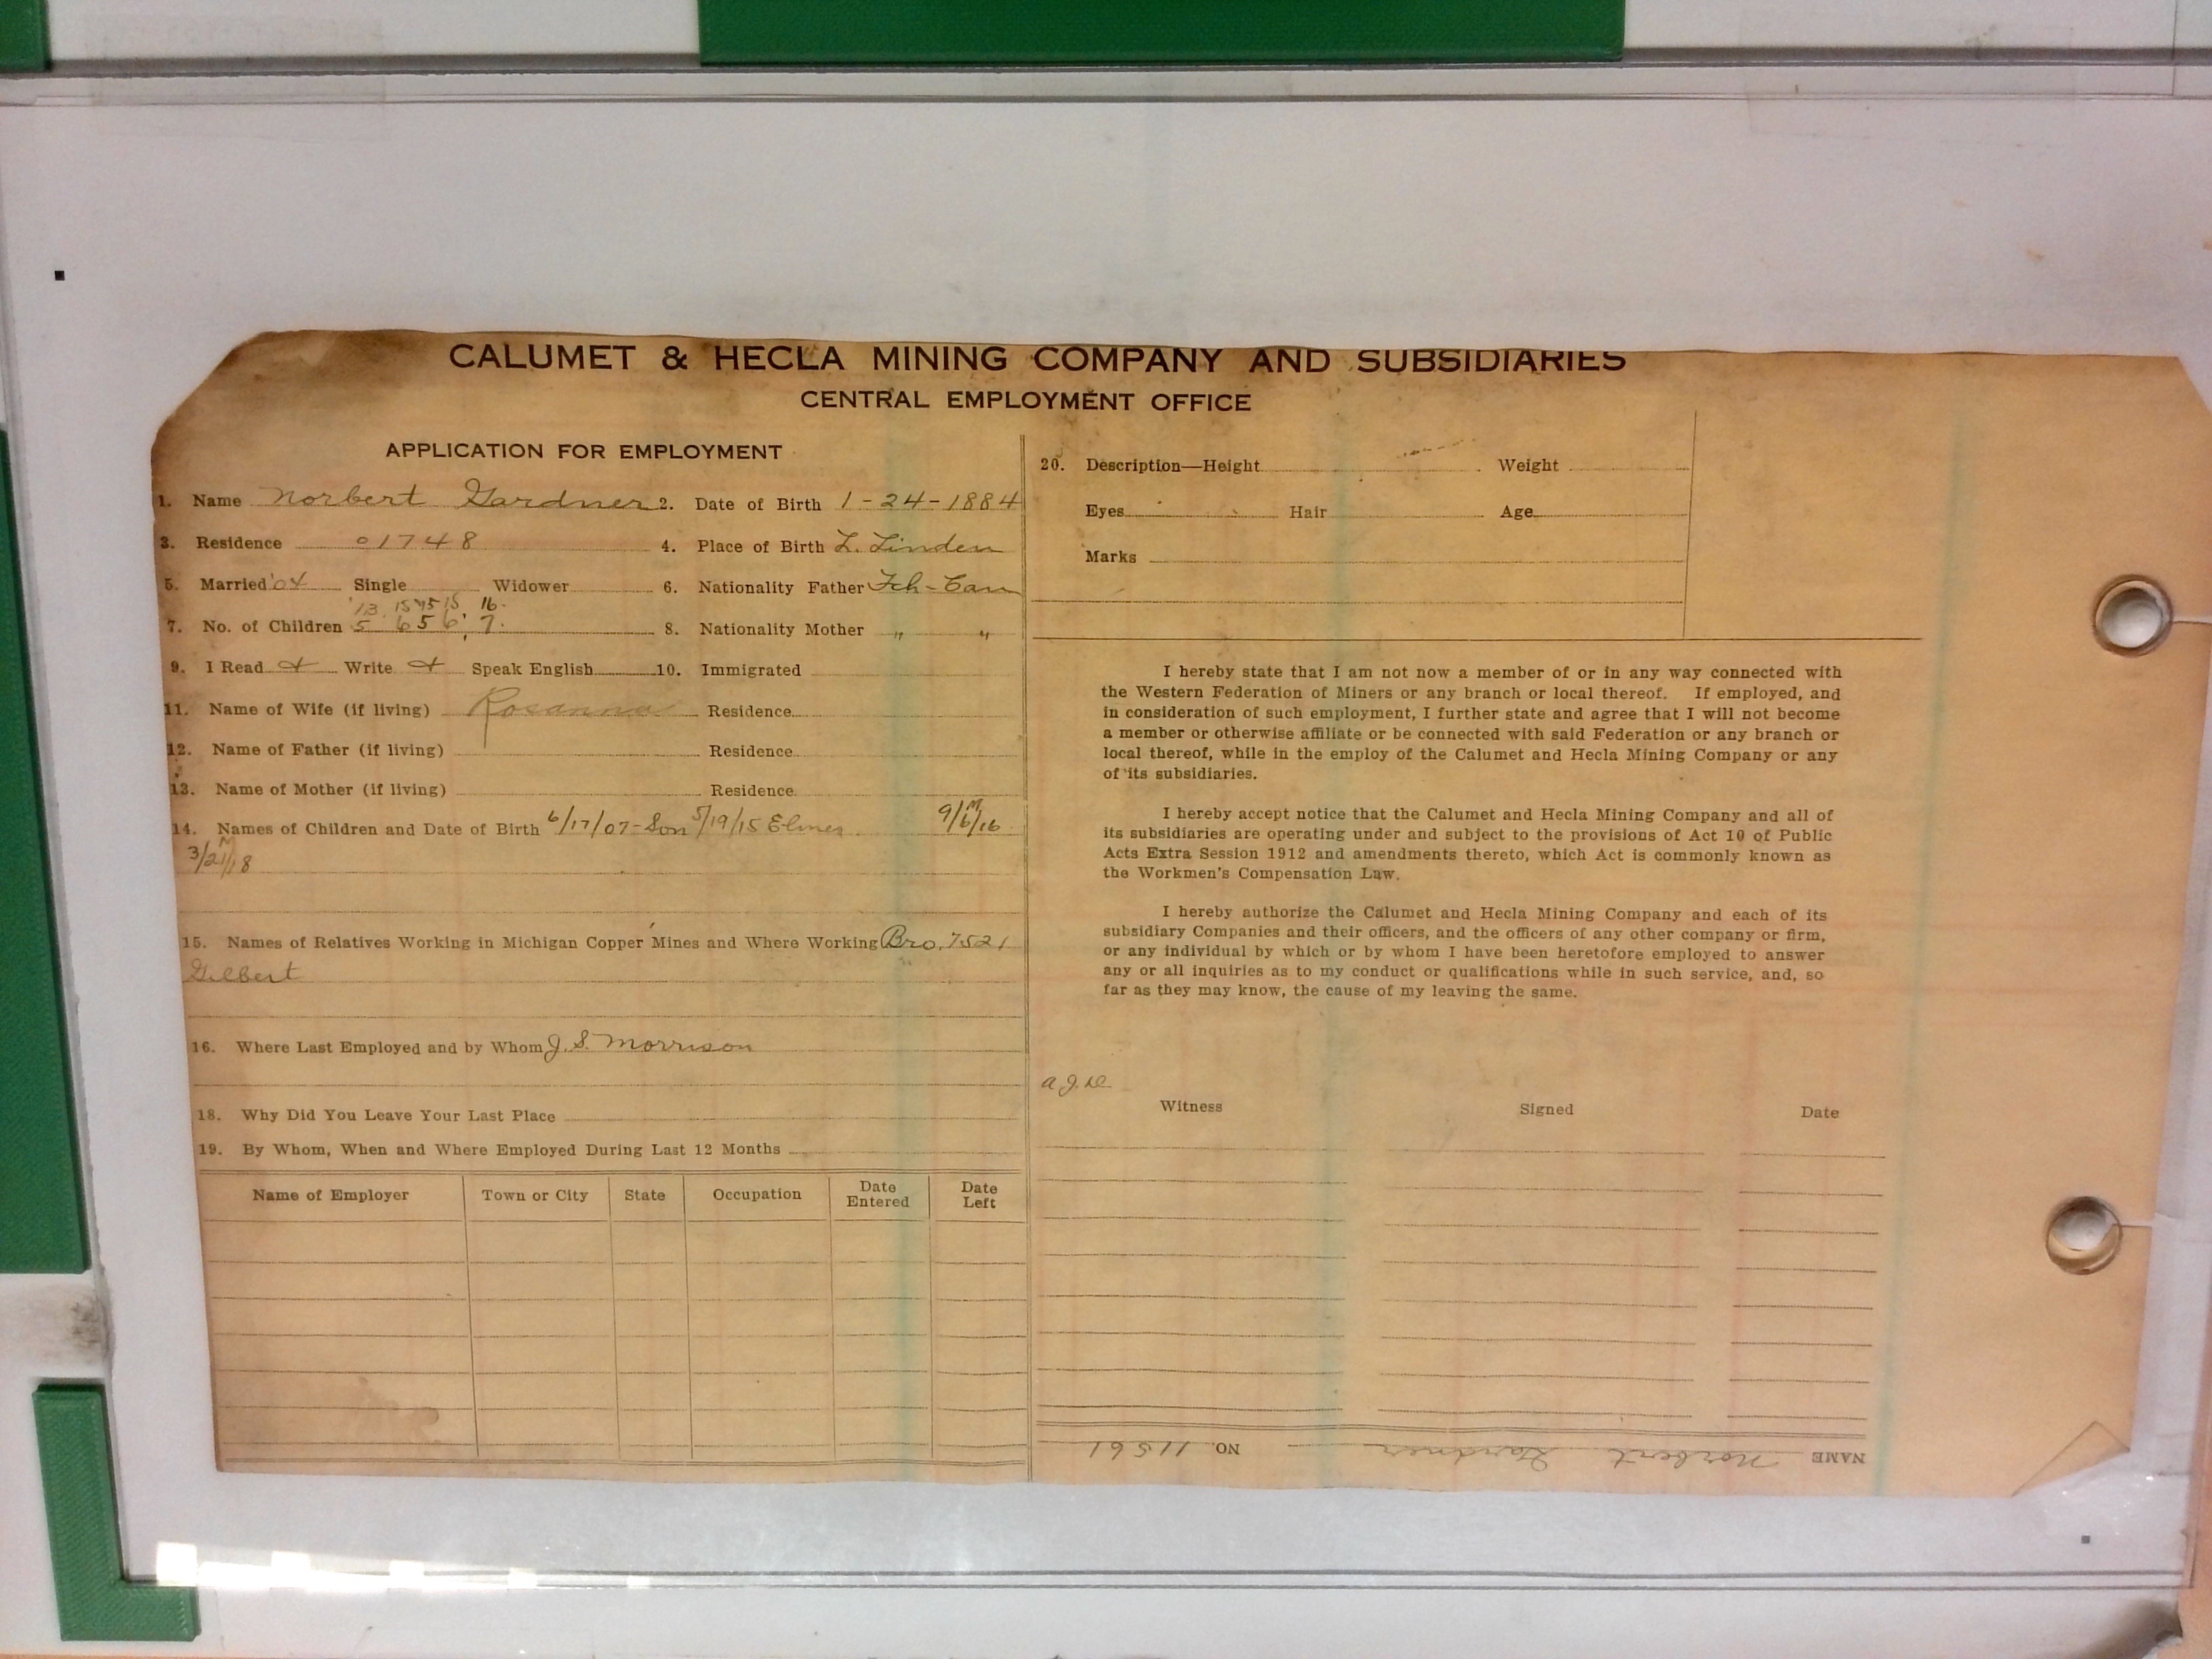 CALUMET & HECLA MINING COMPANY AND SUBSIDIARIES
CENTRAL EMPLOYMENT OFFICE
APPLICATION FOR EMPLOYMENT
1. Name Norbert Gardner 2. Date of Birth 1-24-1884
3. Residence 01748 4. Place of Birth L. Linden
5. Married '04 Single Widower 6. Nationality Father Fch-Can
'13 15 '15 15 16.
7. No. of Children 5 6 5 6 7. 8. Nationality Mother " "
9. I Read Write Speak English 10. Immigrated
11. Name of Wife (if living) Rosanna Residence
12. Name of Father (if living) Residence
13. Name of Mother (if living) Residence
14. Names of Children and Date of Birth 6/17/07-Son 5/19/15 Elmer 9/6/16 M
3/21/18 M
15. Names of Relatives Working in Michigan Copper Mines and Where Working Bro. 7521
Gilbert
16. Where Last Employed and by Whom J. S. Morrison
18. Why Did You Leave Your Last Place
19. By Whom, When and Where Employed During Last 12 Months
Name of Employer Town or City State Occupation Date Entered Date Left
20. Description—Height Weight
Eyes Hair Age
Marks
I hereby state that I am not now a member of or in any way connected with
the Western Federation of Miners or any branch or local thereof. If employed, and
in consideration of such employment, I further state and agree that I will not become
a member or otherwise affiliate or be connected with said Federation or any branch or
local thereof, while in the employ of the Calumet and Hecla Mining Company or any
of its subsidiaries.
I hereby accept notice that the Calumet and Hecla Mining Company and all of
its subsidiaries are operating under and subject to the provisions of Act 10 of Public
Acts Extra Session 1912 and amendments thereto, which Act is commonly known as
the Workmen's Compensation Law.
I hereby authorize the Calumet and Hecla Mining Company and each of its
subsidiary Companies and their officers, and the officers of any other company or firm,
or any individual by which or by whom I have been heretofore employed to answer
any or all inquiries as to my conduct or qualifications while in such service, and, so
far as they may know, the cause of my leaving the same.
Witness Signed Date
NAME Norbert Gardner NO. 11561